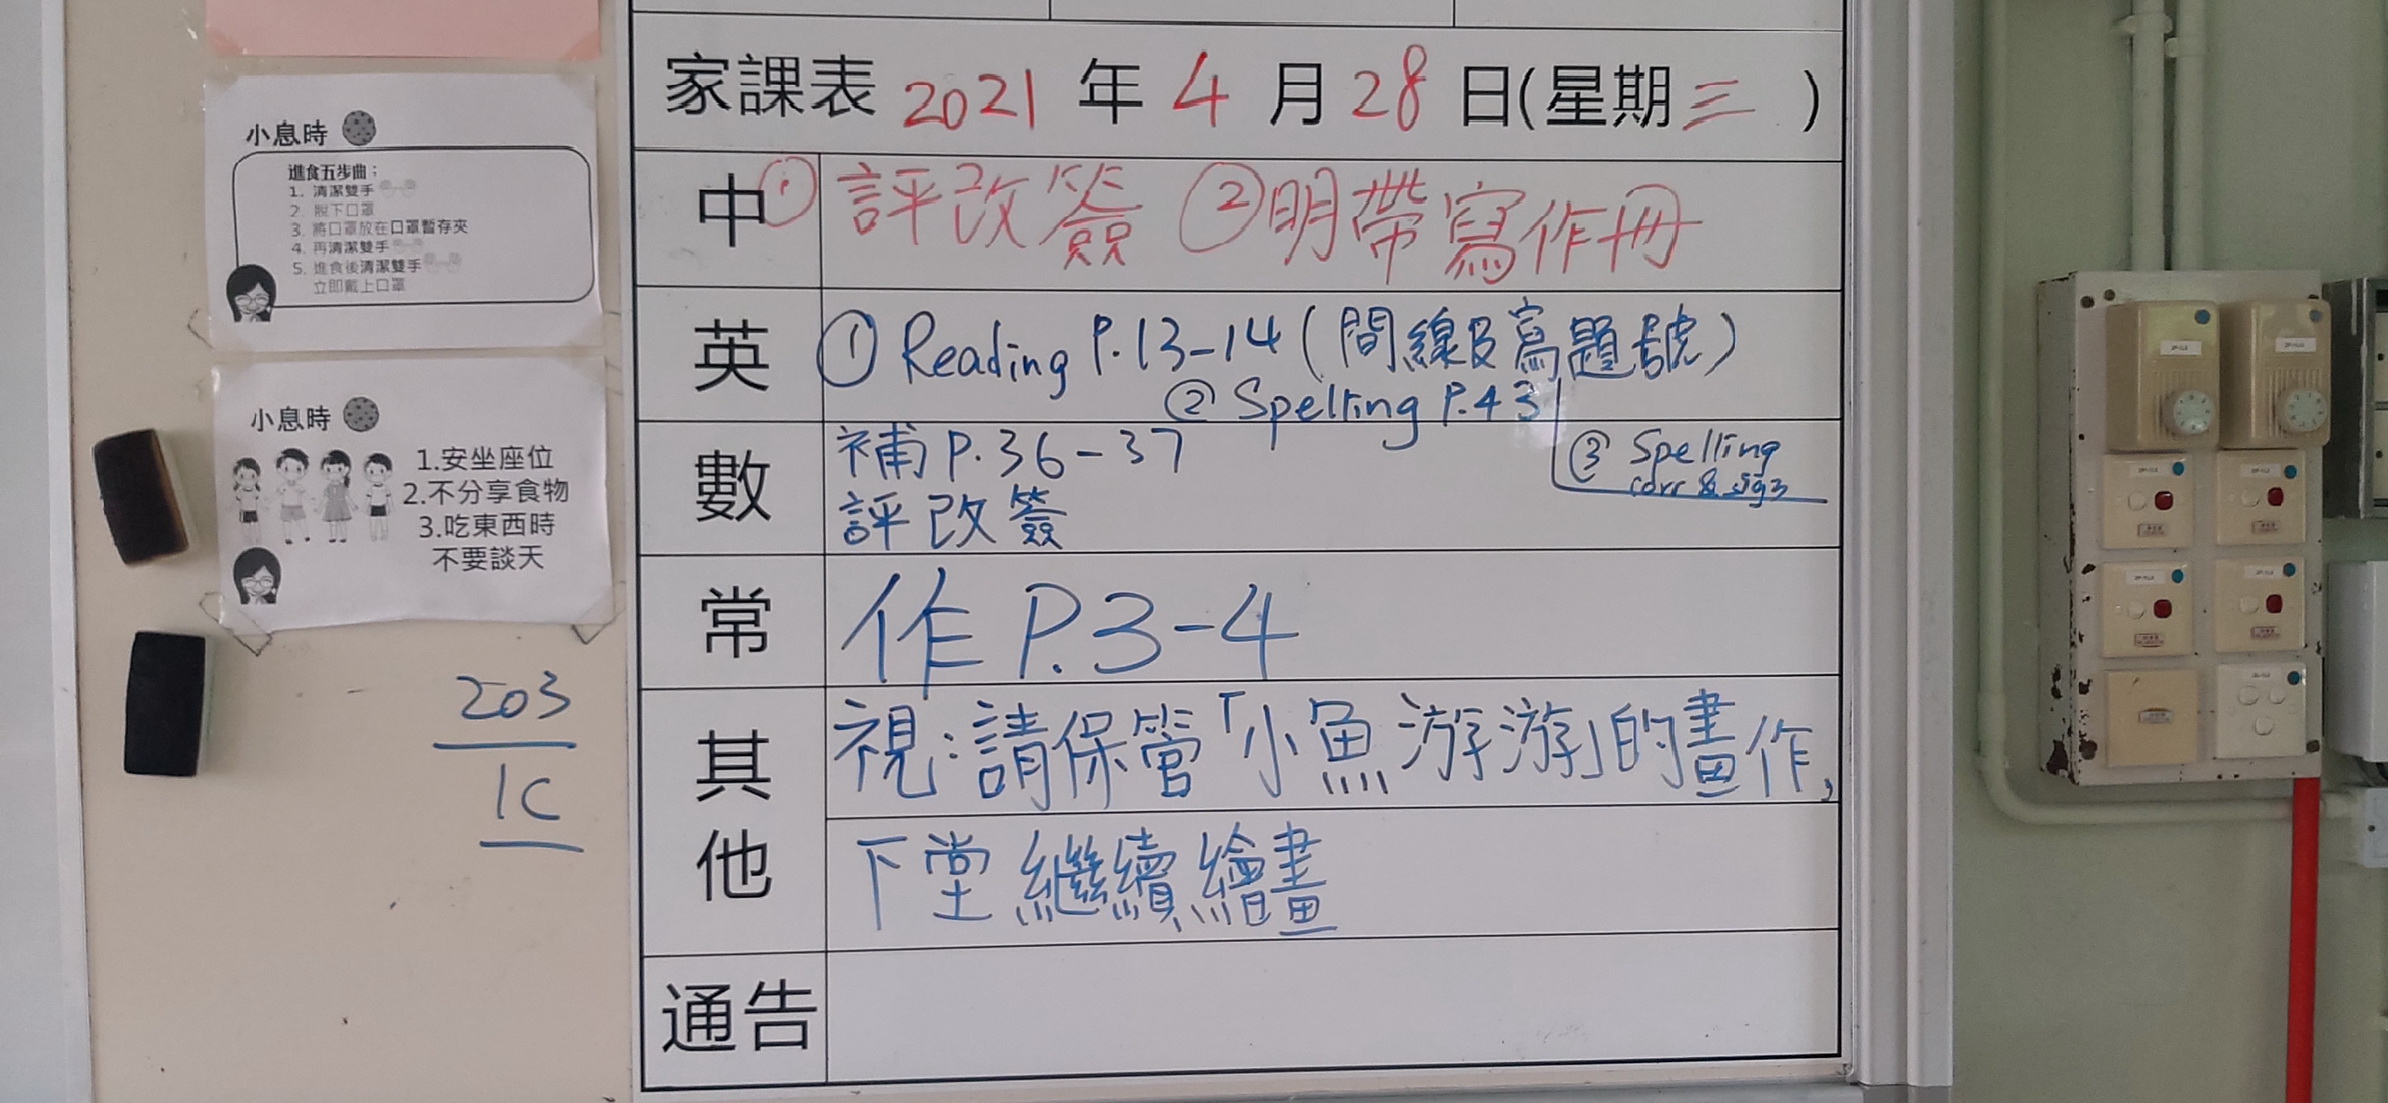 小息時
進食五步曲：
1. 清潔雙手
2. 脫下口罩
3. 將口罩放在口罩暫存夾
4. 再清潔雙手
5. 進食後清潔雙手
立即戴上口罩
小息時
1.安坐座位
2.不分享食物
3.吃東西時
不要談天
203
1C
家課表 2021 年 4 月 28 日(星期三)
中 ①評改簽 ②明帶寫作冊
英 ①Reading P.13-14(間線及寫題號)
②Spelling P.43
③Spelling
corr & sign
數 補P.36-37
評改簽
常 作P.3-4
其他 視:請保管「小魚游游」的畫作,
下堂繼續繪畫
通告